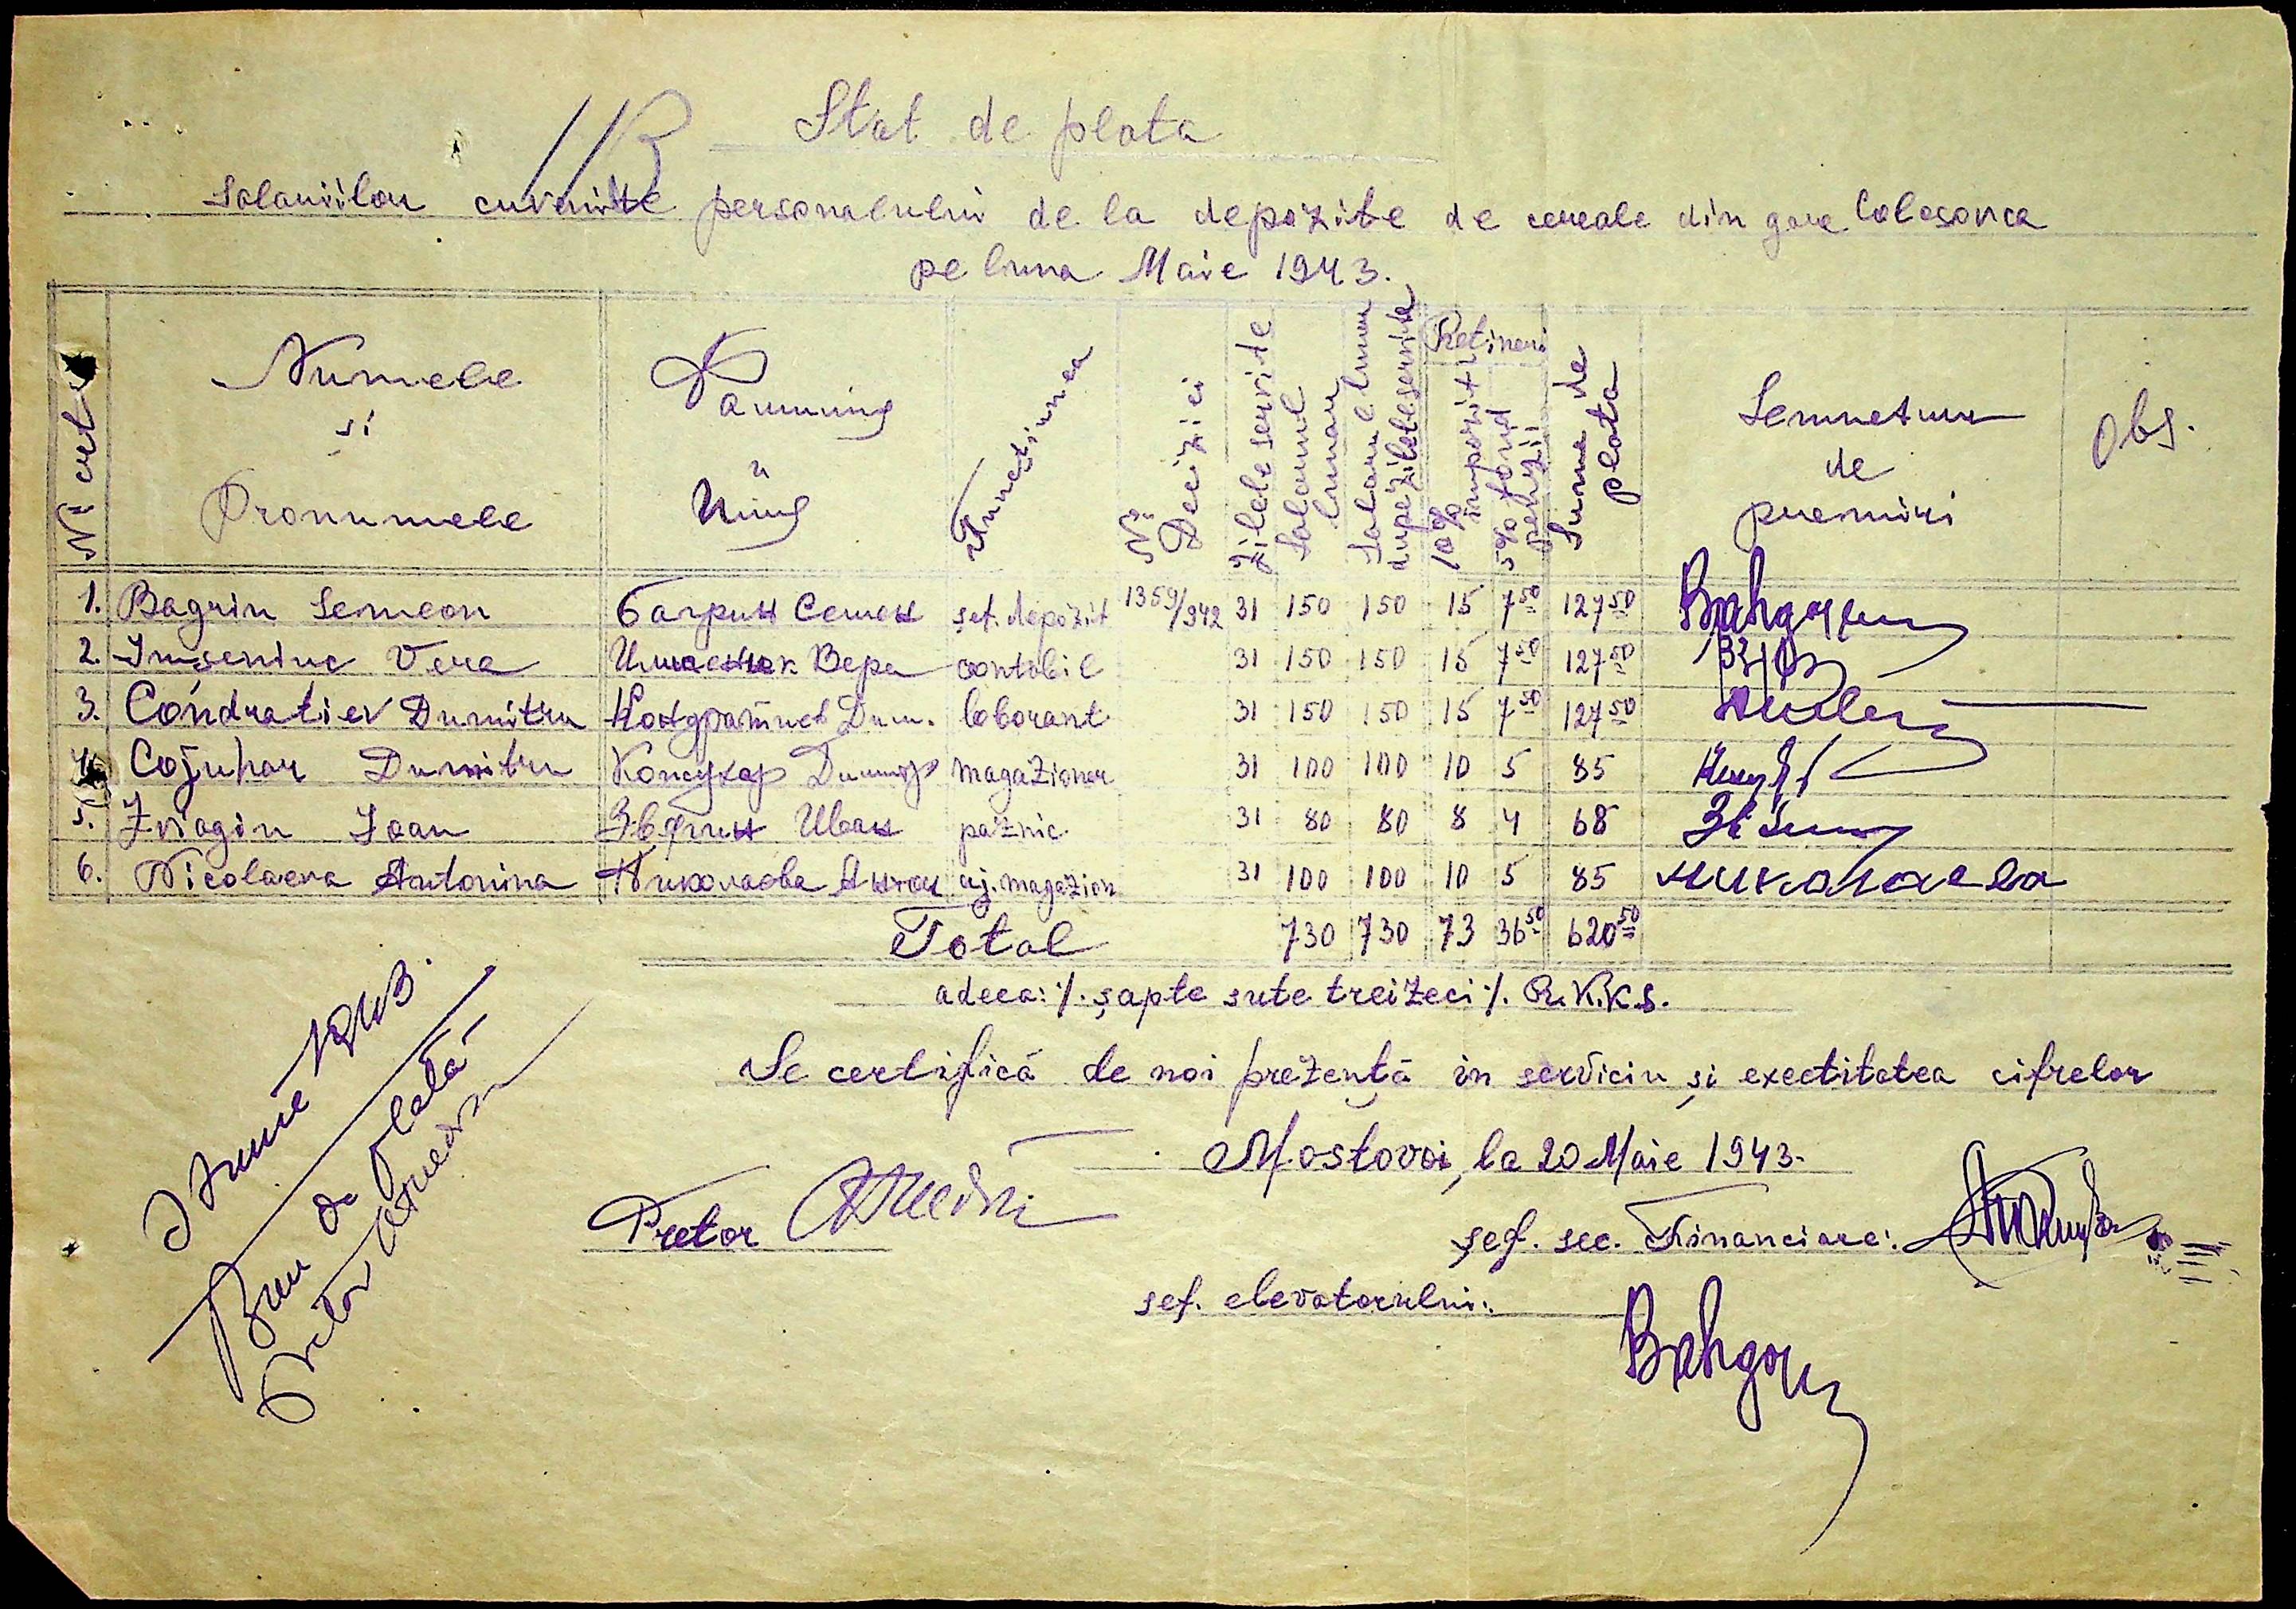 11B
Stat de plata
Salariilor cuvenite personalului de la depozite de cereale din gara Colosovca
pe luna Maie 1943.
№ crt Numele si Pronumele Фамилия и Имя Funcţiunea № Deciziei Zilele servite Salariul lunar Salariul lunar dupe zilele servite Retineri 10% impozit 5% fond pensii Suma de plata Semnetura de premiri Obs.
1. Bagrin Semeon Багрин Семен şef. depozit 1359/942 31 150 150 15 7 50 127 50
2. Imseniuc Vera Имшенюк Вера contabil 31 150 150 15 7 50 127 50
3. Condratiev Dumitru Кондратиев Дим. laborant 31 150 150 15 7 50 127 50
4. Cojuhar Dumitru Кожухар Димитр magazioner 31 100 100 10 5 85
5. Zviagin Ioan Звягин Иван paznic 31 80 80 8 4 68
6. Nicolaeva Antonina Николаева Антон aj. magazion 31 100 100 10 5 85 николаева
Total 730 730 73 36 50 620 50
adeca: /. şapte sute treizeci /. R.K.K.S.
Se certifică de noi prezenţă in serviciu şi exectitatea cifrelor
Mostovoi, la 20 Maie 1943.
Pretor
şef. sec. Financiare:
sef. elevatorului:
Iunie 1943.
Bun de plată
Pretor